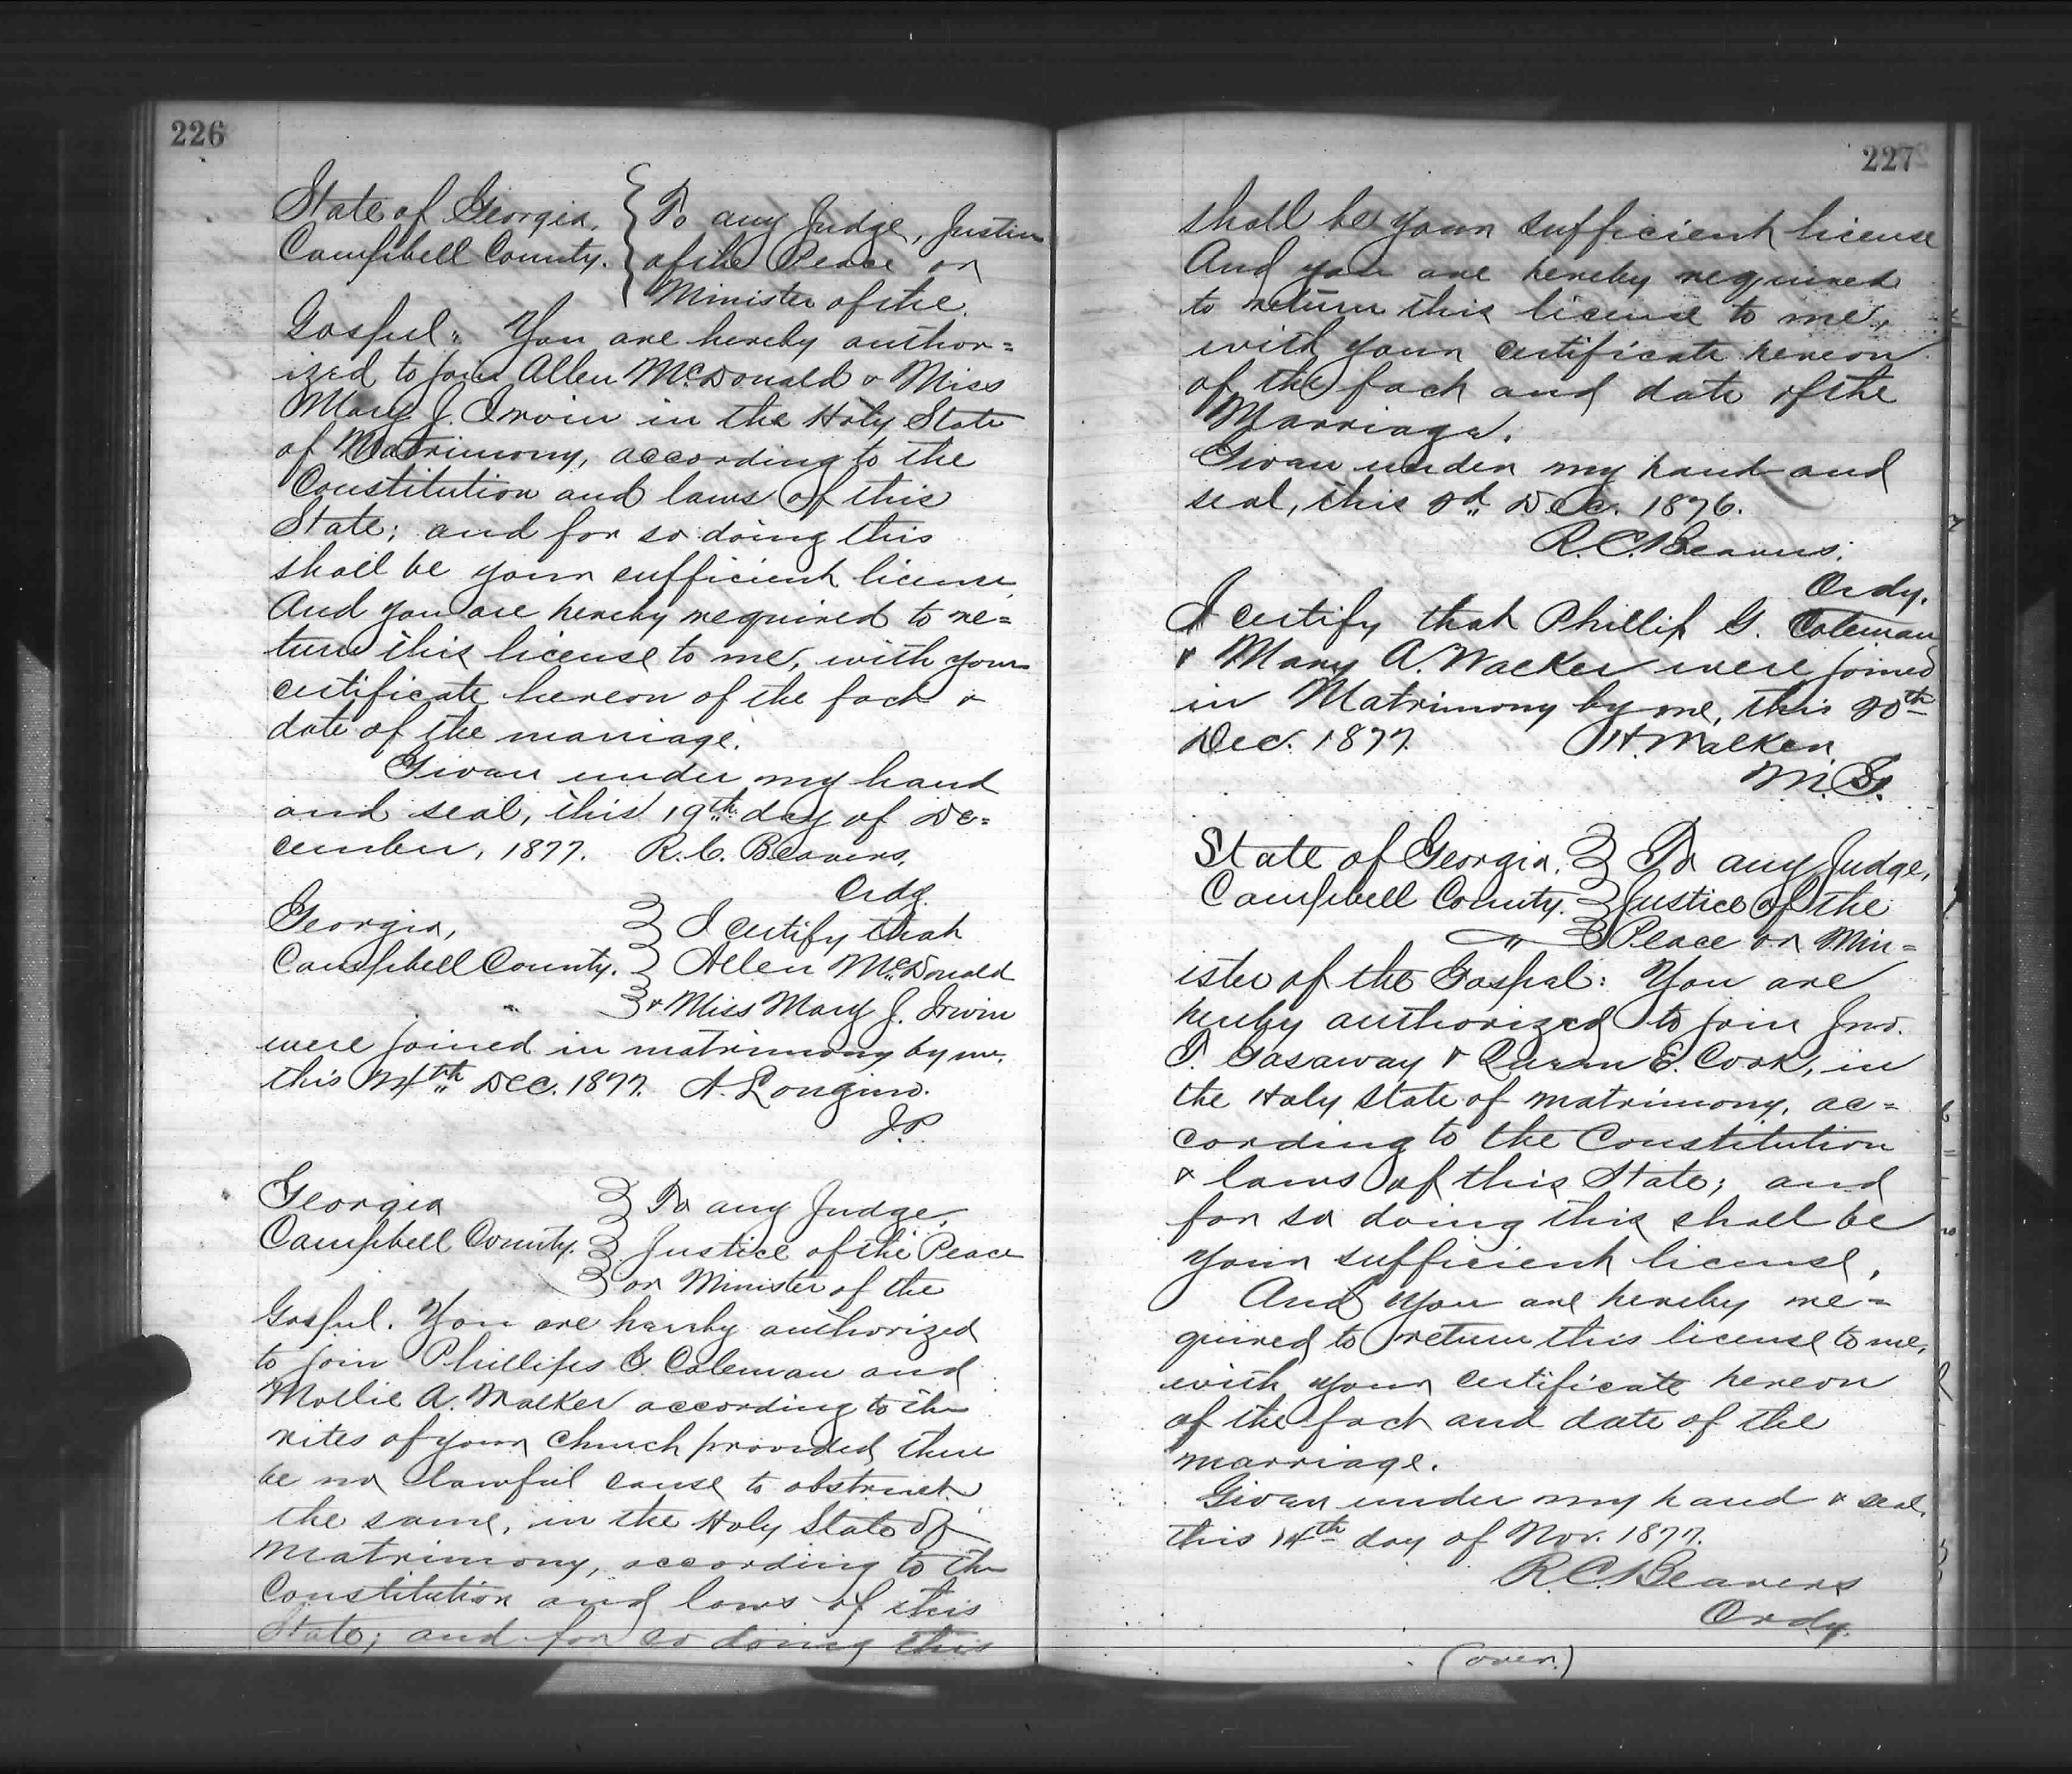 226
State of Georgia, To any Judge, Justice
Campbell County. of the Peace or
Minister of the
Gospel: You are hereby author=
ized to join Allen McDonald & Miss
Mary J. Irwin in the Holy State
of Matrimony, according to the
Constitution and laws of this
State; and for so doing this
shall be your sufficient license,
And you are hereby required to re=
turn this license to me, with your
certificate hereon of the fact &
date of the marriage.
Given under my hand
and seal, this 19th day of De=
cember, 1877. R. C. Beavers,
Ordy.
Georgia, I certify that
Campbell County. Allen McDonald
& Miss Mary J. Irwin
were joined in matrimony by me,
this Dec. 1877. A. Longino.
J.P.
Georgia To any Judge,
Campbell County. Justice of the Peace
or Minister of the
Gospel. You are hereby authorized
to join Phillips G. Coleman and
Mollie A. Walker according to the
rites of your Church provided there
be no lawful cause to obstruct
the same, in the Holy State of
Matrimony, according to the
Constitution and laws of this
State; and for so doing this
227
shall be your sufficient license
And you are hereby required
to return this license to me,
with your certificate hereon
of the fact and date of the
Marriage.
Given under my hand and
seal, this Dec. 1876.
R. C. Beavers.
Ordy.
I certify that Phillip G. Coleman
& Mary A. Walker were joined
in Matrimony by me, this 20th
Dec. 1877. H. Walker
M. G.
State of Georgia, To any Judge,
Campbell County. Justice of the
" Peace or Min=
ister of the Gospel: You are
hereby authorized to join Jno.
Gasaway & E. Cook, in
the Holy State of matrimony, ac=
cording to the Constitution
& laws of this State; and
for so doing this shall be
your sufficient license,
And you are hereby re=
quired to return this license to me,
with your certificate hereon
of the fact and date of the
marriage.
Given under my hand & seal,
this 14th day of Nov. 1877.
R. C. Beavers
Ordy.
(over)